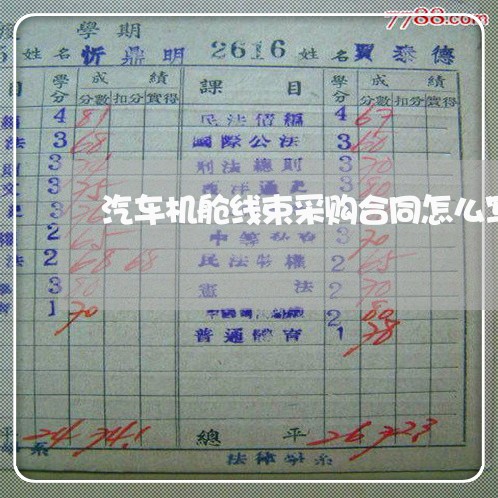 7788.com
學期
姓名 忻鼎明 2616 姓名 賈泰德
目 學分 成績 課目 學分 成績
分數 扣分 實得 分數 扣分 實得
4 81 民法債編 4 67
法 3 68 國際公法 3 60
3 刑法總則 3 70
3 75 西洋通史 3 80
汽车机舱线束采购合同怎么写
2 65 3 70
法 2 68 68 民法物權 2 65
3 80 憲法 2 70
1 70 2 80
普通體育 1 78
平 24 74.1 總平 26 72.3
系 法律學系